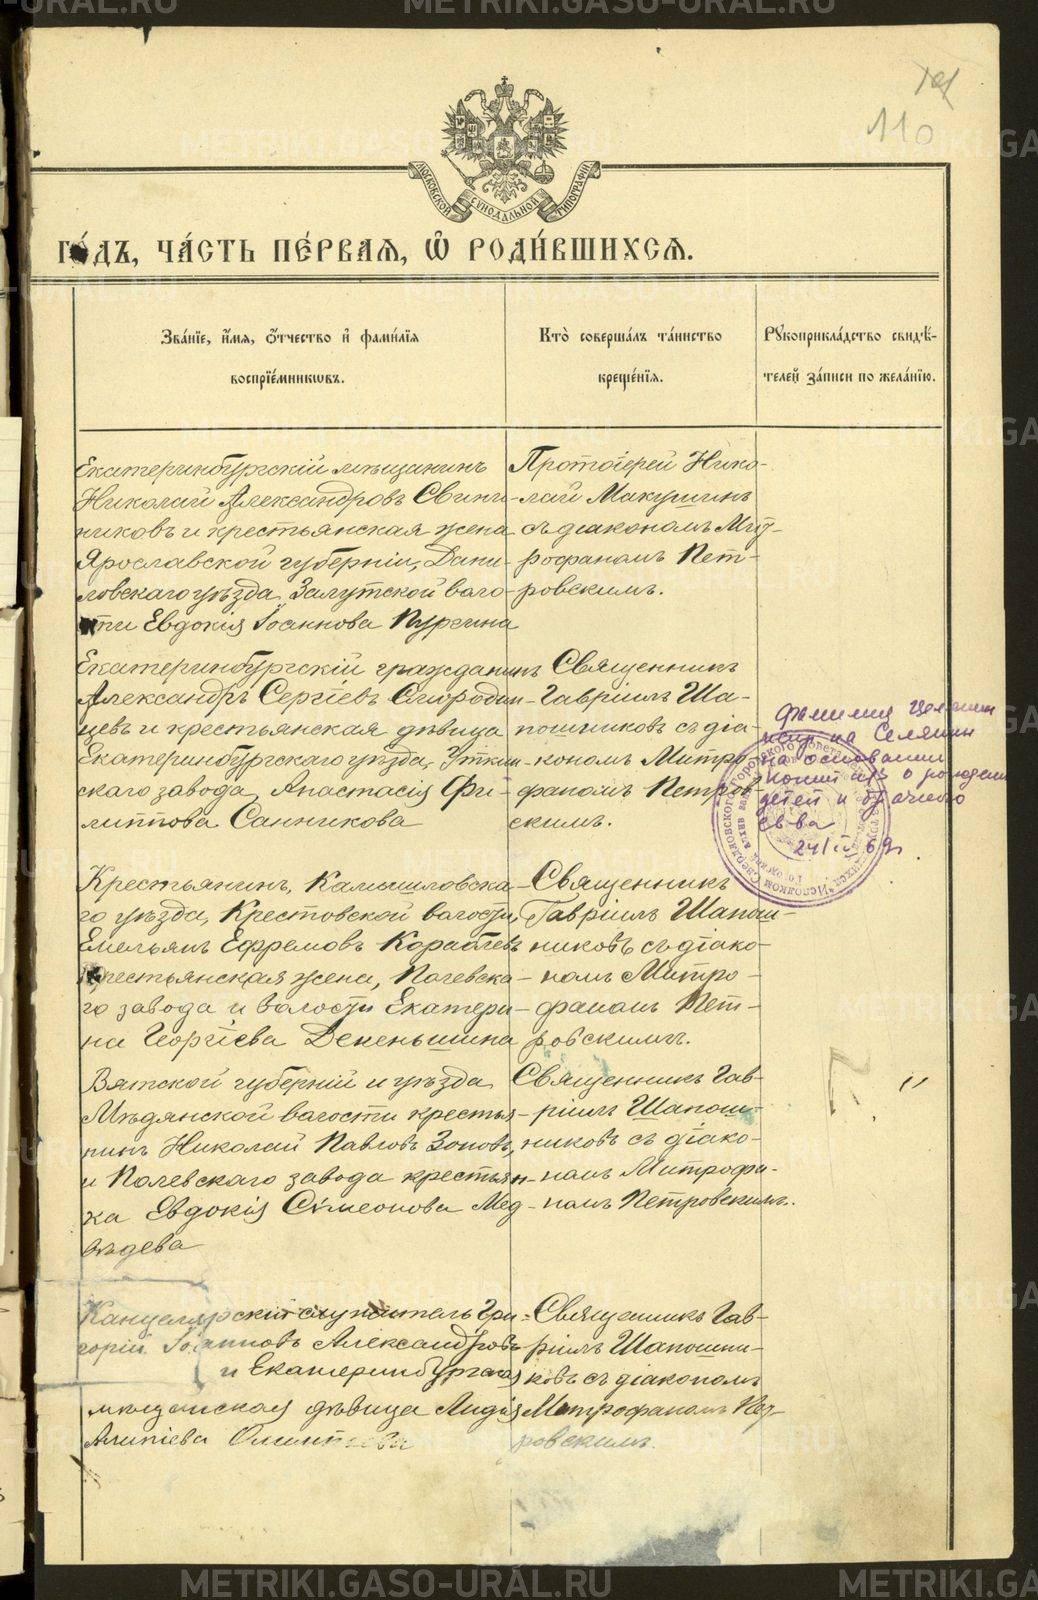 110
МОСКОВСКОЙ СѴНОДАЛЬНОЙ ТИПОГРАФІИ
ГО́ДЪ, ЧА́СТЬ ПЕ́РВАѦ, Ѡ҆ РОДИ́ВШИХСѦ.
Зва́нїе, и҆́мѧ, ѻ҆́тчество и҆ фами́лїѧ
воспрїе́мникѡвъ.
Кто̀ соверша́лъ та́инство
креще́нїѧ.
Рꙋкоприкла́дство свидѣ́-
телей за́писи по жела́нїю.
Екатеринбургскій мѣщанинъ
Николай Александровъ Свинь-
никовъ и крестьянская жена
Ярославской губерніи, Дани-
ловскаго уѣзда, Залутской воло-
сти Евдокія Іоаннова Пургина
Протоіерей Нико-
лай Макушинъ
съ діакономъ Мит-
рофаномъ Пет-
ровскимъ.
Екатеринбургскій гражданинъ
Александръ Сергіевъ Огородни-
цевъ и крестьянская дѣвица
Екатеринбургскаго уѣзда, Уткин-
скаго завода, Анастасія Фи-
липпова Санникова
Священникъ
Гавріилъ Ша-
пошниковъ съ діа-
кономъ Митро-
фаномъ Петров-
скимъ.
Фамилия
на Селянин
на основании
копий о рождении
детей и брачного
св-ва
24/IV 69г.
Крестьянинъ, Камышловска-
го уѣзда, Крестовской волости,
Емельянъ Ефремовъ Кораблевъ
Крестьянская жена, Полевска-
го завода и волости Екатери-
на Георгіева Декеньшина
Священникъ
Гавріилъ Шапош-
никовъ съ діако-
номъ Митро-
фаномъ Пет-
ровскимъ.
Вятской губерніи и уѣзда,
Мѣдянской волости крестья-
нинъ Николай Павловъ Зоновъ,
и Полевскаго завода крестьян-
ка Евдокія Сѵмеонова Мед-
вѣдева
Священникъ Гав-
ріилъ Шапош-
никовъ съ діако-
номъ Митрофа-
номъ Петровскимъ.
Канцелярскій служитель Гри-
горій Іоанновъ Александровъ
и Екатеринбургская
мѣщанская дѣвица Лидія
Алипіева
Священникъ Гав-
ріилъ Шапошни-
ковъ съ діакономъ
Митрофаномъ Пет-
ровскимъ.
METRIKI.GASO-URAL.RU